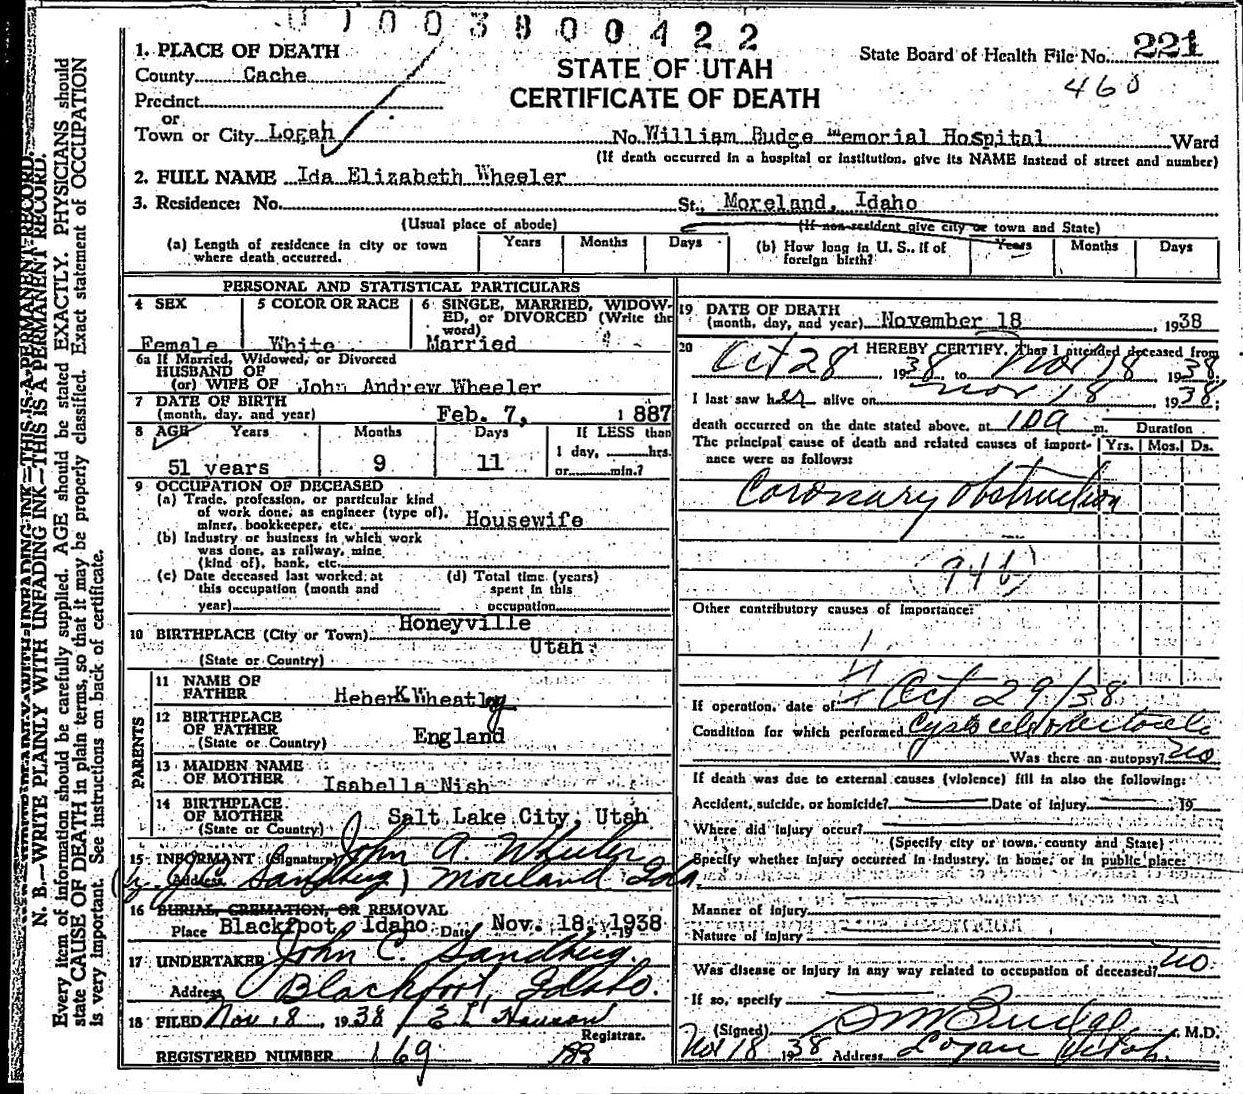 01003800422
1. PLACE OF DEATH
County Cache
Precinct
or
Town or City Logan
STATE OF UTAH
CERTIFICATE OF DEATH
State Board of Health File No. 221
460
No. William Budge Memorial Hospital Ward
(If death occurred in a hospital or institution, give its NAME instead of street and number)
2. FULL NAME Ida Elizabeth Wheeler
3. Residence: No. St., Moreland, Idaho
(Usual place of abode) (If non-resident give city or town and State)
(a) Length of residence in city or town where death occurred. Years Months Days
(b) How long in U. S., if of foreign birth? Years Months Days
PERSONAL AND STATISTICAL PARTICULARS
4 SEX
Female
5 COLOR OR RACE
White
6 SINGLE, MARRIED, WIDOW-
ED, or DIVORCED (Write the
word)
Married
6a If Married, Widowed, or Divorced
HUSBAND OF
(or) WIFE OF John Andrew Wheeler
7 DATE OF BIRTH
(month, day, and year) Feb. 7, 1887
8 AGE Years Months Days If LESS than
1 day, hrs.
or min.?
51 years 9 11
9 OCCUPATION OF DECEASED
(a) Trade, profession, or particular kind
of work done, as engineer (type of),
miner, bookkeeper, etc. Housewife
(b) Industry or business in which work
was done, as railway, mine
(kind of), bank, etc.
(c) Date deceased last worked at
this occupation (month and
year)
(d) Total time (years)
spent in this
occupation
10 BIRTHPLACE (City or Town) Honeyville
Utah
(State or Country)
PARENTS
11 NAME OF
FATHER Heber K Wheatley
12 BIRTHPLACE
OF FATHER England
(State or Country)
13 MAIDEN NAME
OF MOTHER Isabella Nish
14 BIRTHPLACE
OF MOTHER Salt Lake City, Utah
(State or Country)
15 INFORMANT (Signature) John A. Wheeler
Address (by J.C. Sandberg) Moreland Ida.
16 BURIAL, CREMATION, OR REMOVAL
Place Blackfoot Idaho Date Nov. 18, 1938
17 UNDERTAKER John C. Sandberg.
Address Blackfoot, Idaho.
18 FILED Nov 18, 1938
Registrar.
REGISTERED NUMBER 169
183
19 DATE OF DEATH
(month, day, and year) November 18, 1938
20 I HEREBY CERTIFY, That I attended deceased from
Oct 28, 1938, to Nov 18 1938
I last saw her alive on Nov 18 1938;
death occurred on the date stated above, at 10 a m. Duration
The principal cause of death and related causes of import-
ance were as follows:
Yrs. Mos. Ds.
Coronary obstruction
94b
Other contributory causes of importance:
If operation, date of Oct 29/38
Condition for which performed Cystocele & rectocele
Was there an autopsy? no
If death was due to external causes (violence) fill in also the following:
Accident, suicide, or homicide? Date of injury 19
Where did injury occur?
(Specify city or town, county and State)
Specify whether injury occurred in industry, in home, or in public place:
Manner of injury
Nature of injury
Was disease or injury in any way related to occupation of deceased? no
If so, specify
(Signed) Budge, M.D.
Nov 18 1938 Address Logan Utah.
N. B.—WRITE PLAINLY WITH UNFADING INK—THIS IS A PERMANENT RECORD.
Every item of information should be carefully supplied. AGE should be stated EXACTLY. PHYSICIANS should
state CAUSE OF DEATH in plain terms, so that it may be properly classified. Exact statement of OCCUPATION
is very important. See instructions on back of certificate.